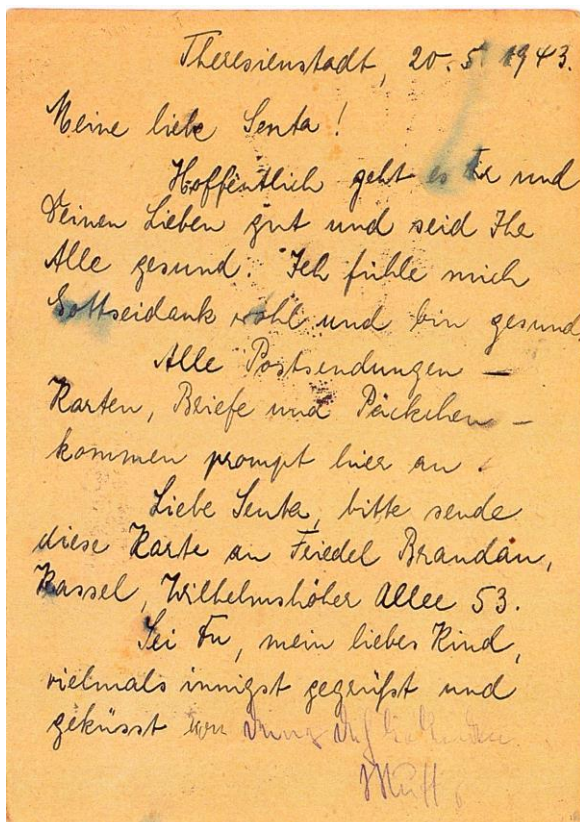 Theresienstadt, 20.5 1943.
Meine liebe Senta!
Hoffentlich geht es Dir und
Deinen Lieben gut und seid Ihr
Alle gesund. Ich fühle mich
Gottseidank wohl und bin gesund.
Alle Postsendungen –
Karten, Briefe und Päckchen –
kommen prompt hier an.
Liebe Senta, bitte sende
diese Karte an Friedel Brandau,
Kassel, Wilhelmshöher Allee 53.
Sei Du, mein liebes Kind,
vielmals innigst gegrüßt und
geküsst von Deiner Dich liebenden
Mutti